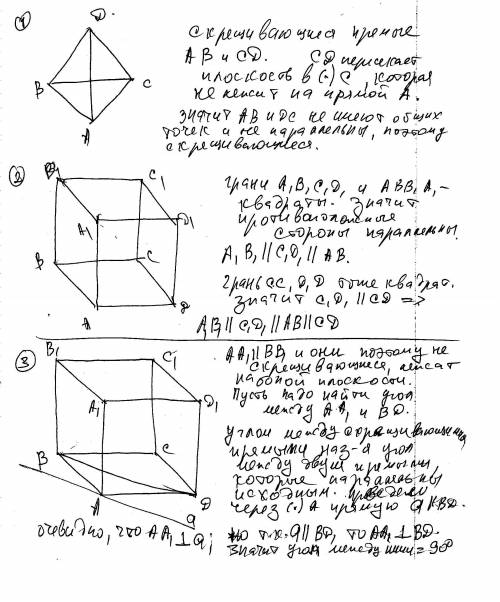 ①
D.
B
C
A
скрещивающиеся прямые
AB и CD. CD пересекает
плоскость в (·) C, которая
не лежит на прямой A.
значит AB и DC не имеют общих
точек и не параллельны, поэтому
скрещивающиеся.
②
B₁
C₁
A₁
D₁
B
C
A
D
грани A₁B₁C₁D₁ и ABB₁A₁ –
квадраты. Значит
противоположные
стороны параллельны.
A₁B₁ || C₁D₁ || AB.
Грань CC₁D₁D тоже квадрат.
значит C₁D₁ || CD =>
A₁B₁ || C₁D₁ || AB || CD
③
B₁
C₁
A₁
D₁
B
C
A
D
a
AA₁ || BB₁ и они поэтому не
скрещивающиеся, лежат
на одной плоскости.
Пусть надо найти угол
между AA₁ и BD.
углом между скрещивающимися
прямыми наз-я угол
между двумя прямыми,
которые параллельны
исходным. проведем
через (·) A прямую a || BD.
очевидно, что AA₁ ⊥ a;
но т.к. a || BD, то AA₁ ⊥ BD.
значит угол между ними = 90°